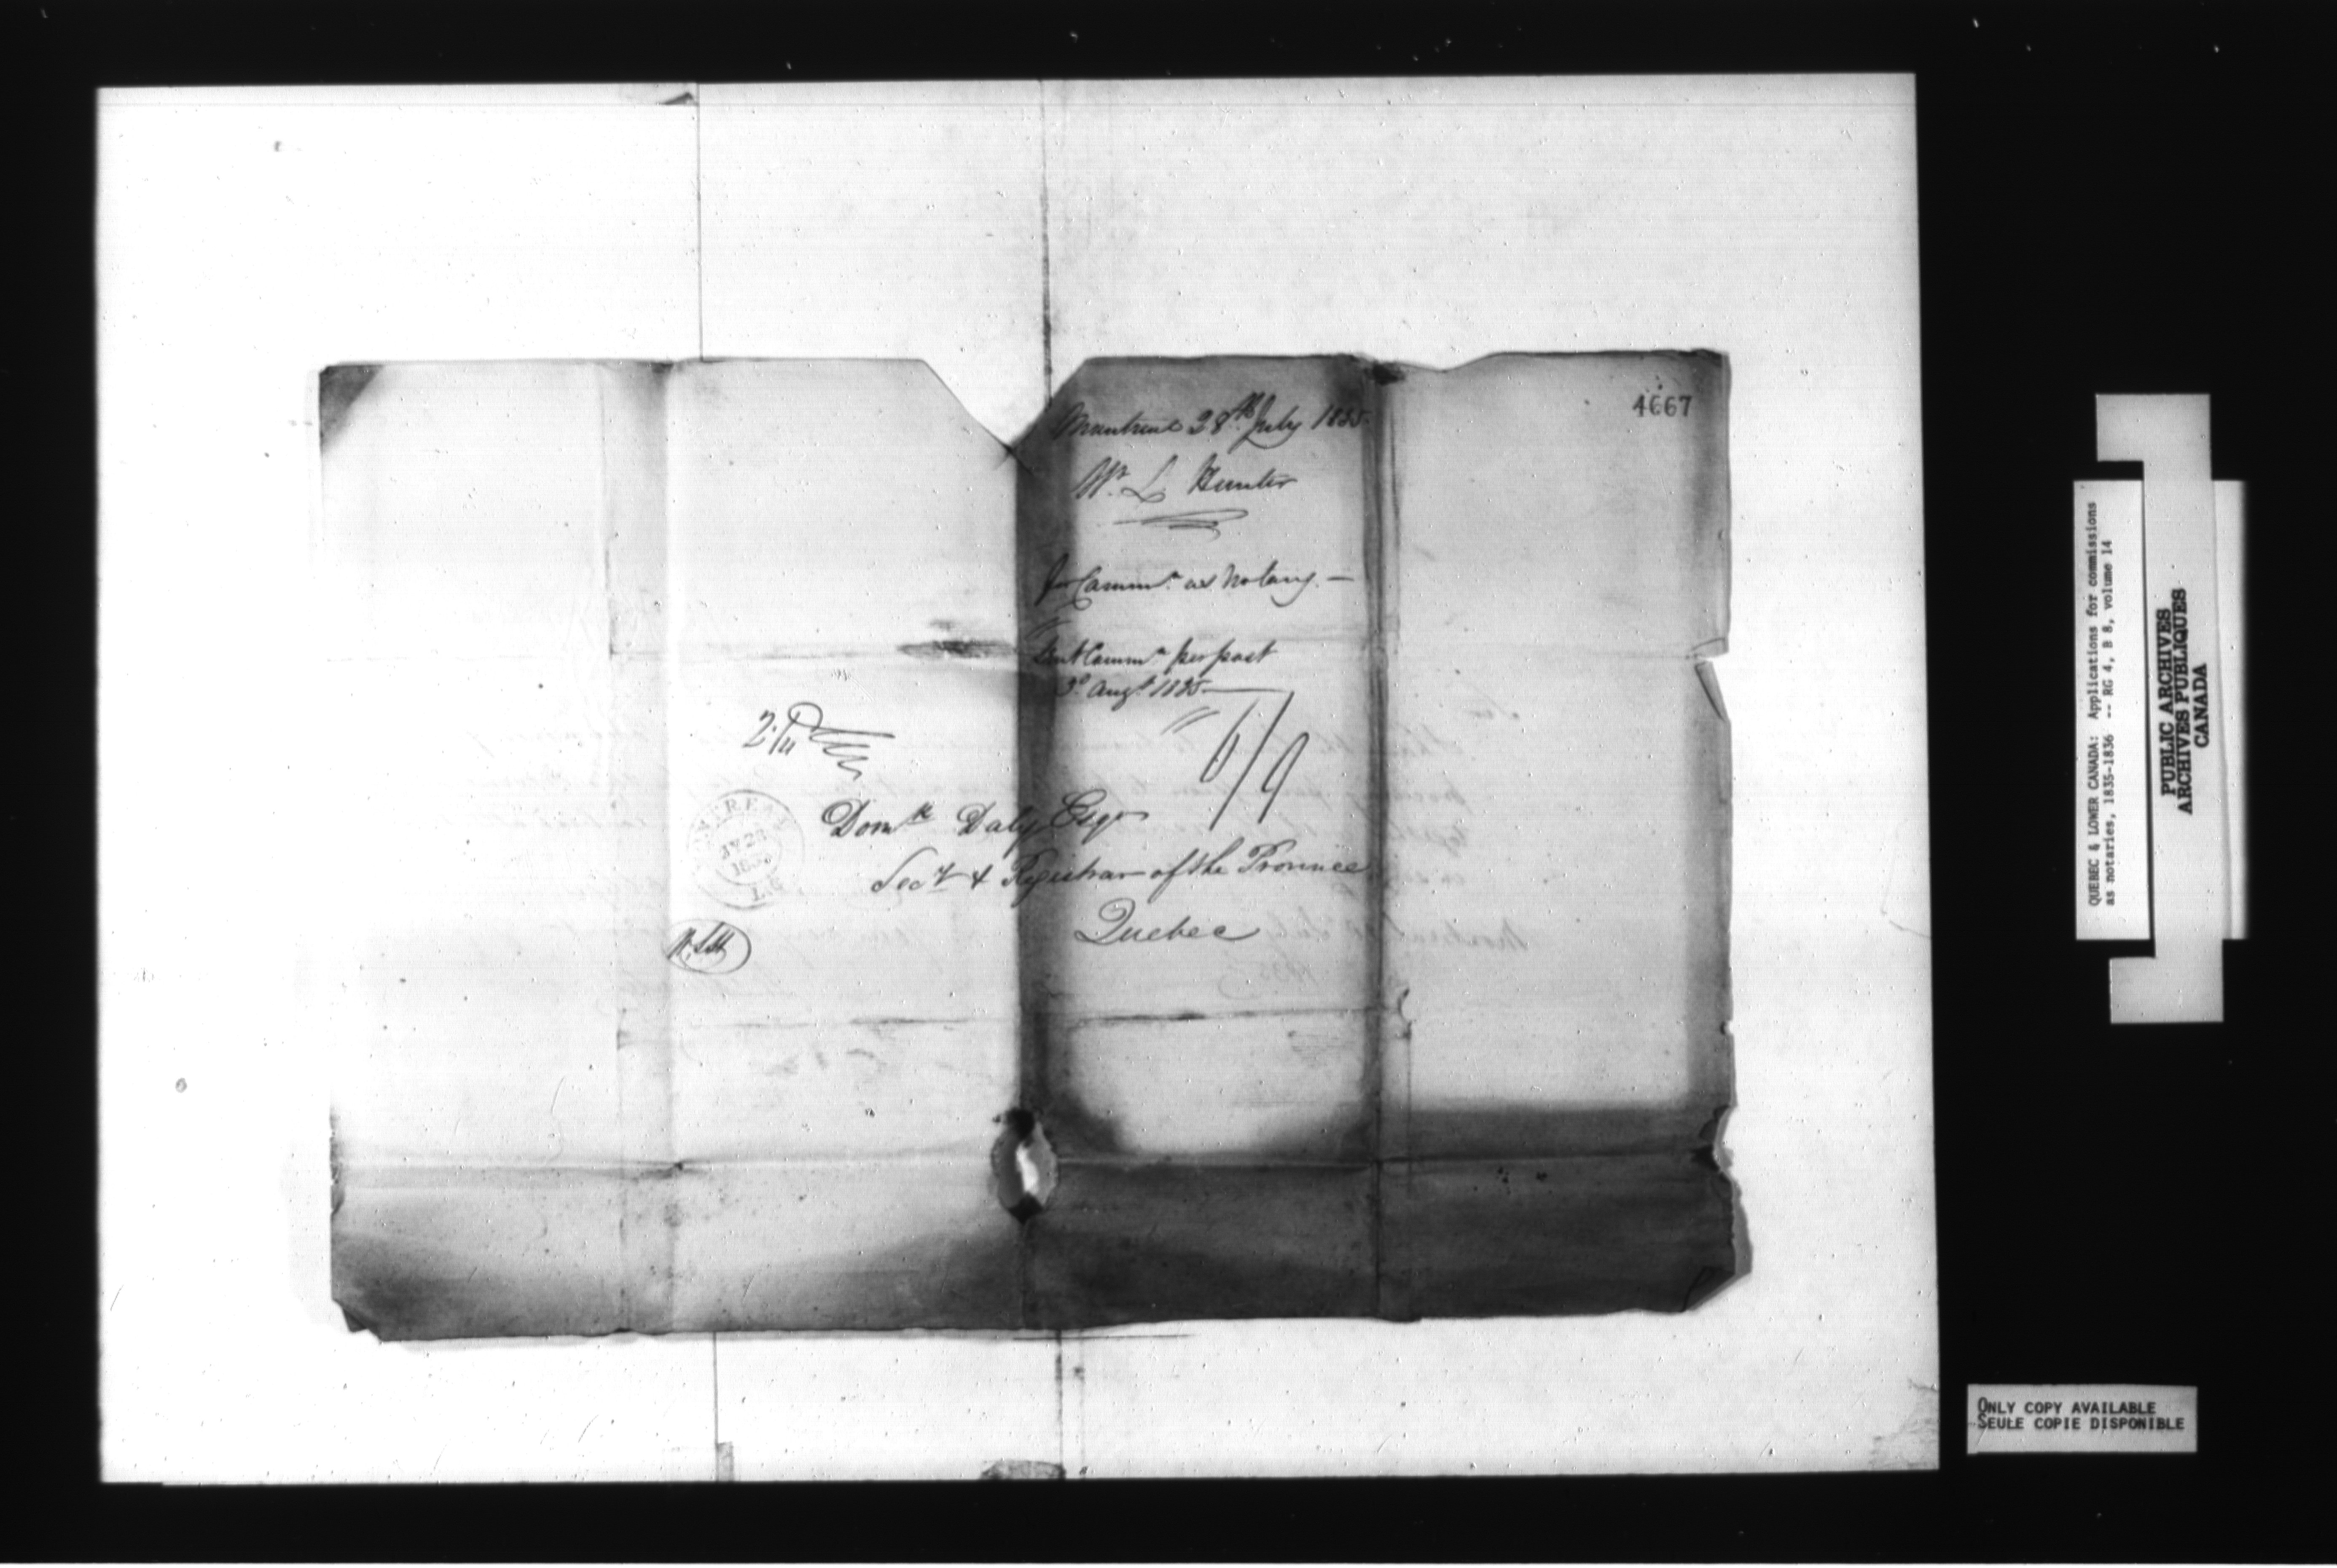 4667
Montreal 28th July 1835
Wm L Hunter
for Commn as Notary. —
Sent Commn per post
3d Augt 1835 —
6/9
MONTREAL
JY 28
1835
L.C
Domk Daly Esqr
Secy & Registrar of the Province
Quebec
QUEBEC & LOWER CANADA: Applications for commissions
as notaries, 1835-1836 -- RG 4, B 8, volume 14
PUBLIC ARCHIVES
ARCHIVES PUBLIQUES
CANADA
ONLY COPY AVAILABLE
SEULE COPIE DISPONIBLE